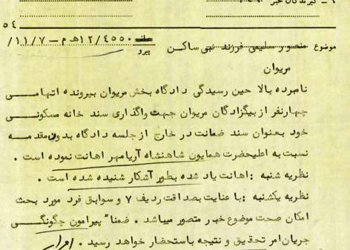 ۵۴
۱۲/۴۵۵۰ ه‍ـ م - ۱۱/۷/
پیرو
موضوع منصور سلیمی فرزند نبی ساکن
مریوان
نامبرده بالا حین رسیدگی دادگاه بخش مریوان بپرونده اتهامی
چهارنفر از بیگزادگان مریوان جهت واگذاری سند خانه مسکونی
خود بعنوان سند ضمانت در خارج از جلسه دادگاه بدون مقدمه
نسبت به اعلیحضرت همایون شاهنشاه آریامهر اهانت نموده است .
نظریه شنبه : اهانت یاد شده بطور آشکار شنیده شده است .
نظریه یکشنبه : با عنایت بصداقت ردیف ۷ و سوابق فرد مورد بحث
امکان صحت موضوع خبر متصور میباشد . ضمنا" پیرامون چگونگی
جریان امر تحقیق و نتیجه باستحضار خواهد رسید .